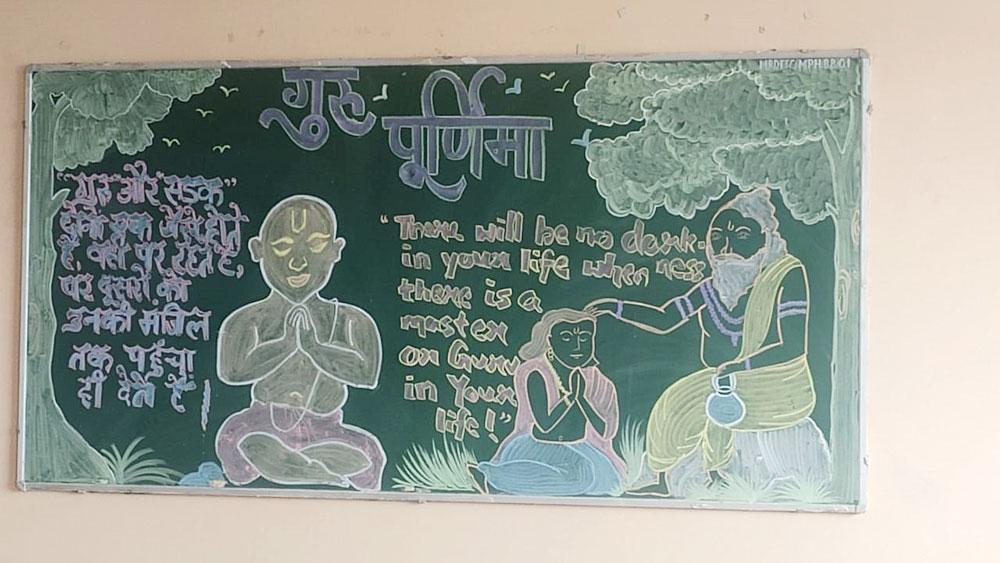 गुरु
पूर्णिमा
"गुरु और सडक"
दोनों एक जैसे होते
है वही पर रहते है,
पर दूसरों को
उनकी मंजिल
तक पहुंचा
ही देते है।
"There will be no dark-
in your life when ness
there is a
master
or Guru
in Your
life!"